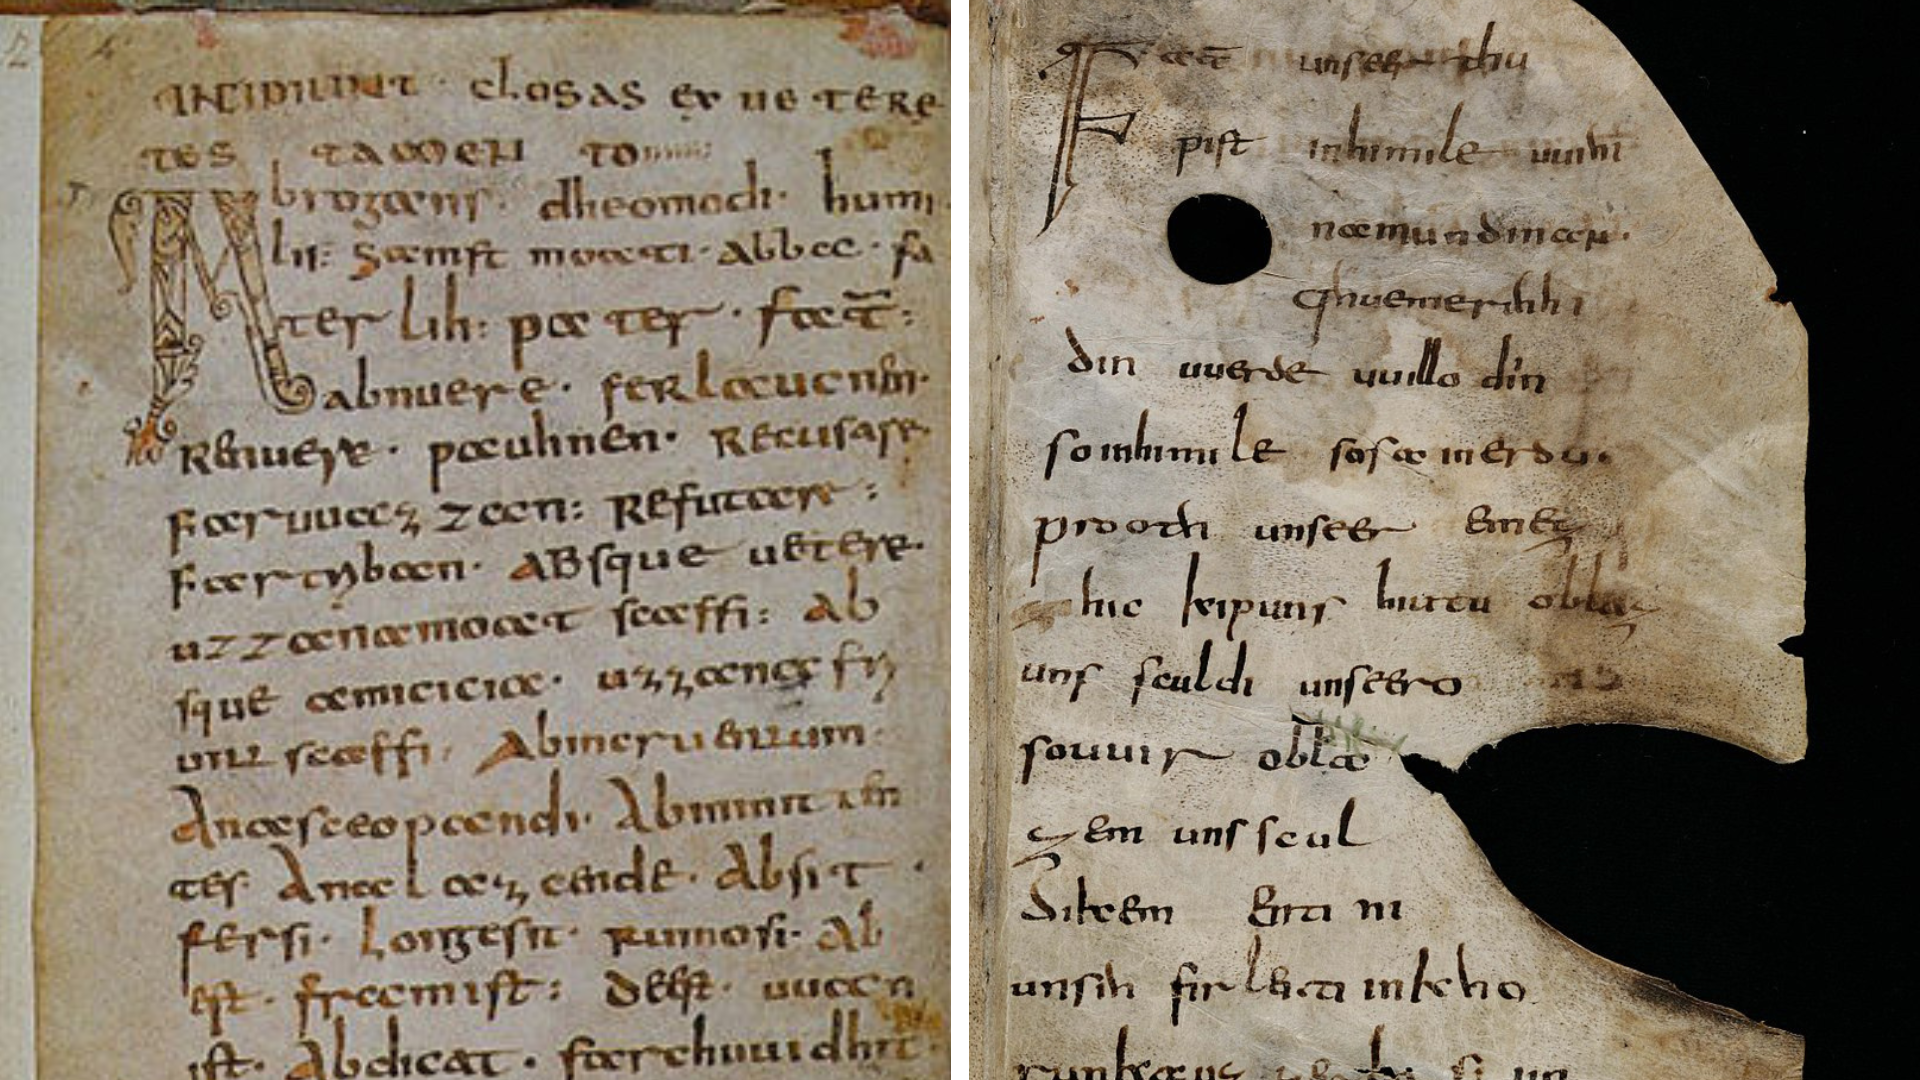 INCIPIUNT CLOSAS EX UETERE
TES TAMEN TO
Abrogans. dheomodi. humi
lis: samft moati. abba. fa
ter lih: pater. fater:
abnuere. ferlaucnen.
Renuere. pauhnen. Recusare.
Faruuazzan: Refutare:
Fartriban. Absque uetere.
uzzana moat scaffi: Ab
sque amicicia. uzzana fri
unt scaffi. Abineruenum.
Anasceopandi.
tes. Anala zende. Absit.
fersi. Longe sit. rumo si. Ab
est. fram ist: Deest. uuan
ist. Abdicat. farchuuidhit.
Fater unseer thu
pist in himile uuihi
namun dinan.
qhueme rihhi
din uuerde uuillo diin
so in himile sosa in erdu.
prooth unseer emez
zihic kip uns hiutu oblaz
uns sculdi unseero
so uuir obla
zem uns scul
dikem enti ni
unsih firleiti in khо
runka